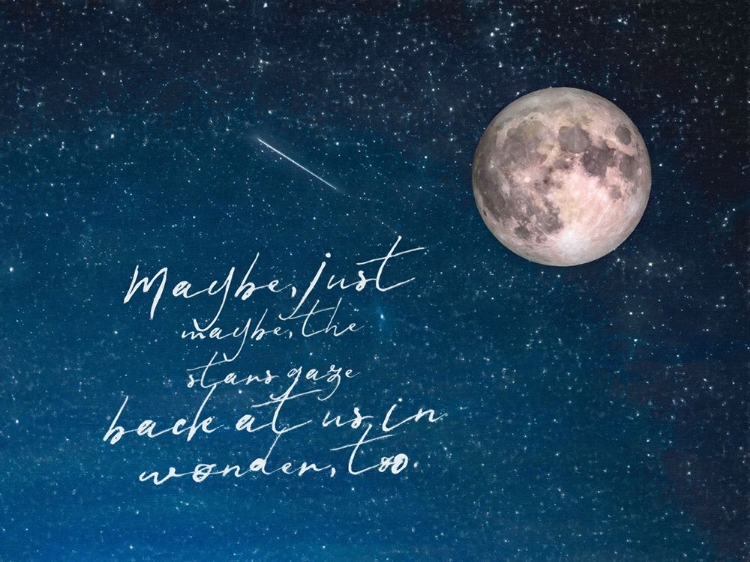 Maybe, just
maybe, the
stars gaze
back at us, in
wonder, too.